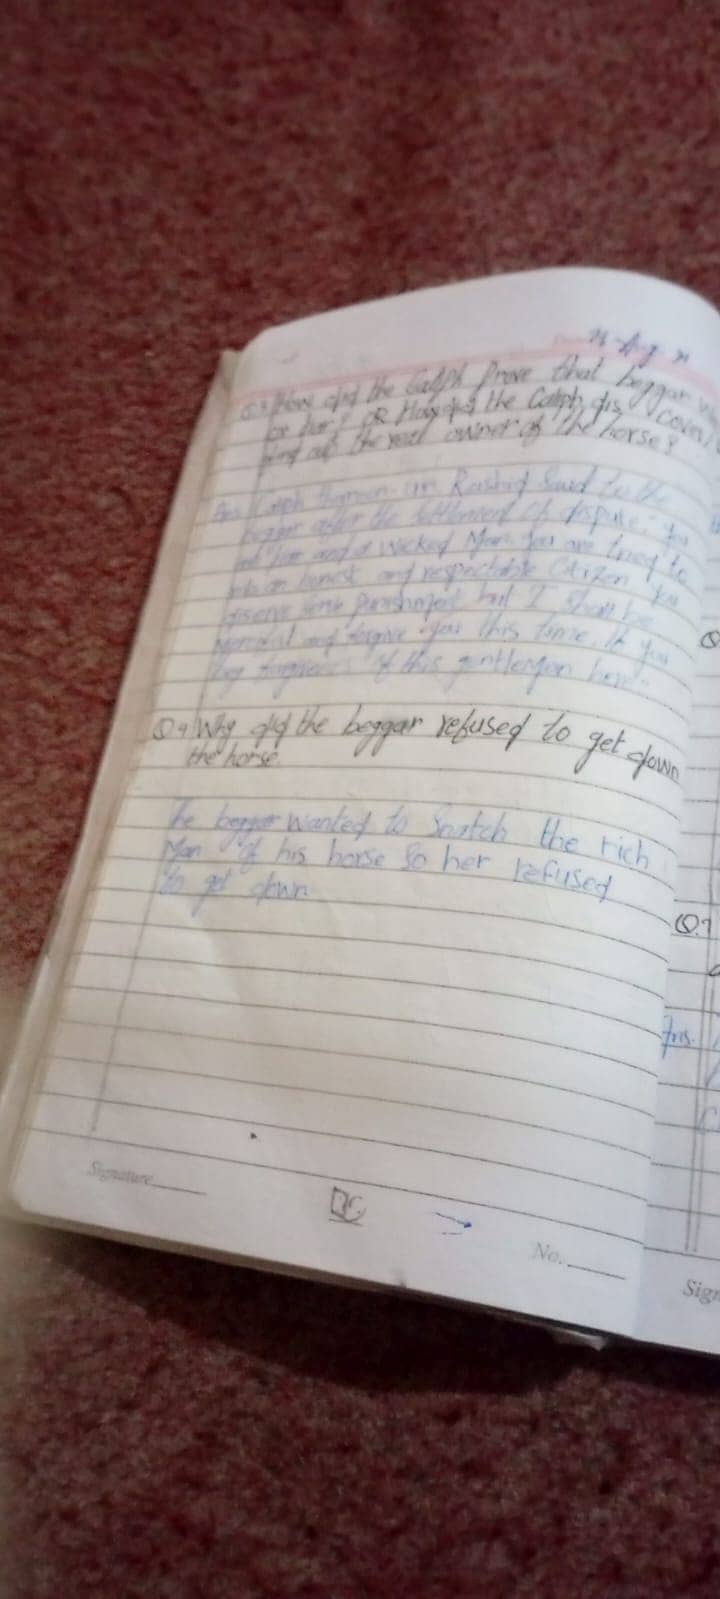 Q.3 How did the Caliph Prove that beggar
or liar? OR How did the Caliph dis cover/
find out the real owner of the horse?
Ans. Caliph Haroon-ur Rashid Said to the
beggar after the settlement of dispute: you
liar and a wicked Man. You are tried to
an honest and respectable Citizen. You
deserve punishment but I shall be
merciful and forgive you this time. If you
beg forgiveness of this gentleman here."
Q 4 Why did the beggar refused to get down
the horse.
The beggar wanted to Snatch the rich
Man of his horse So her refused
to get down.
Signature
No.
Q.
Ans.
Sign